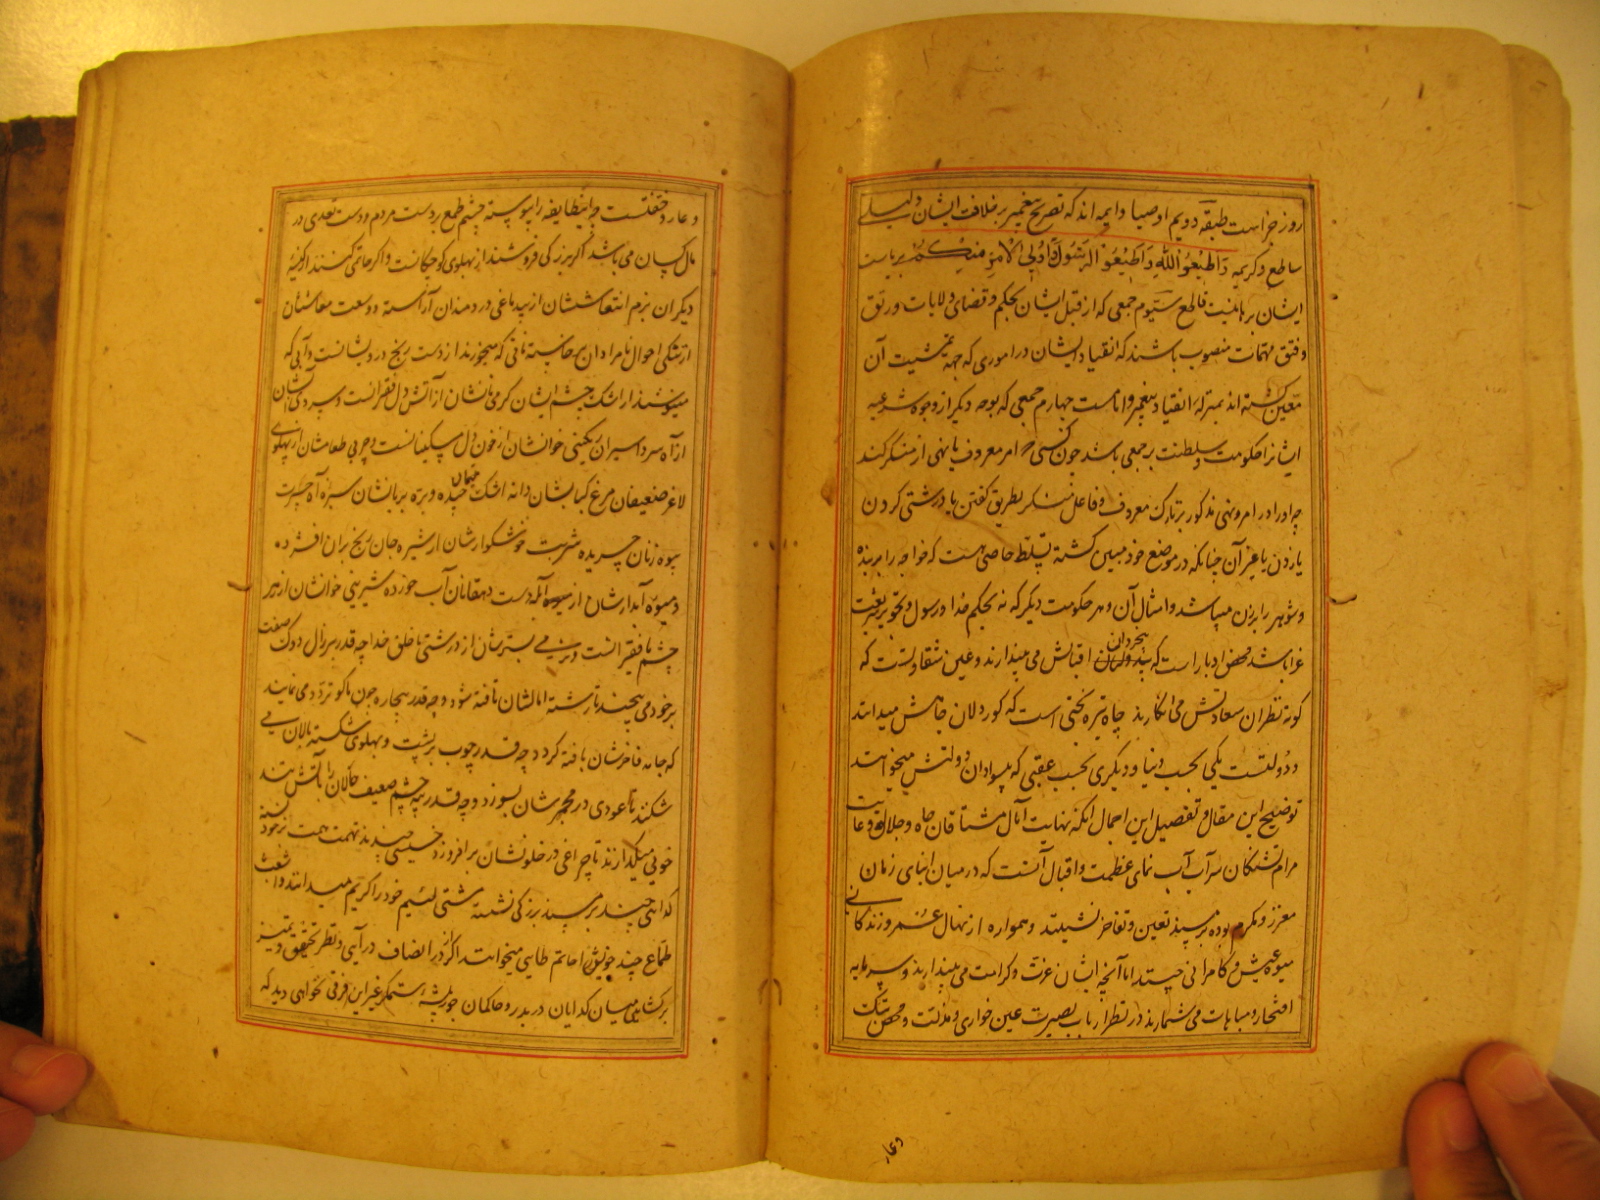 روز جزاست طبقه دویم اوصیا و ایمه اند که تصریح پیغمبر بر خلافت ایشان دلیلی
ساطع و کریمه و اطیعوا الله و اطیعوا الرسول و اولی الامر منکم بریاست
ایشان برهانیست قاطع سیوم جمعی که از قبل ایشان بحکم و قضای ولایات و رتق
و فتق مهمات منصوب باشند که انقیاد ایشان در اموری که جهة تمشیت آن
معین گشته اند بمنزله انقیاد پیغمبر و امامست چهارم جمعی که بوجه دیگر از وجوه شرعیه
ایشانرا حکومت و سلطنت بر جمعی باشد چون کسی امر معروف یا نهی از منکر کند
چه او را در امر و نهی مذکور بر تارک معروف و فاعل منکر بطریق گفتن یا درشتی کردن
یا زدن یا غیر آن چنانکه در موضع خود مبین گشته تسلط خاصی هست که خواجه را بر بنده
و شوهر را بر زن میباشد و امثال آن و هر حکومت دیگر که نه بحکم خدا و رسول و تجویز شریعت
غرا باشد محض ادبار است که بیخردان اقبالش می پندارند و عین شقاوتست که
کوته نظران سعادتش می انگارند چاه تیره بختی است که کوردلان جاهش میدانند
و دولتست یکی بحسب دنیا و دیگری بحسب عقبی که بیسوادان دولتش میخوانند
توضیح این مقال و تفصیل این اجمال آنکه نهایت آمال مشتاقان جاه و جلال و غایت
مرام تشنگان سرآب آب نمای عظمت و اقبال آنست که در میان ابنای زمان
معزز و مکرم بوده بر مسند تعین و تفاخر نشینند و همواره از نهال عمر و زندگانی
میوه عیش و کامرانی چینند اما آنچه ایشان عزت و کرامت می پندارند و سرمایه
افتخار و مباهات می شمارند در نظر ارباب بصیرت عین خواری و مذلت و محض ننگ
و عار
و عار و خفتست چه اینطایفه را پیوسته چشم طمع بر دست مردم و دست تعدی در
مال کسان می باشد اگر بزرگی فروشند از پهلوی کوچکانست و اگر حاتمی کنند از کیسه
دیگران بزم انتعاششان از بیدماغی دردمندان آراسته و وسعت معاششان
از تنگی احوال نامرادان برخاسته نانی که میخورند از دست رنج درویشانست و آبی که
مینوشند از اشک چشم ایشان گرمی نانشان از آتش دل فقراست و سردی آبشان
از آه سرد اسیران رنگینی خوانشان از خون دل مسکینانست و چربی طعامشان از پهلوی
لاغر ضعیفان مرغ کبابشان دانه اشک یتیمان چیده و بره بریانشان سبزه آه حسرت
بیوه زنان چریده شربت خوشگوارشان از شیره جان رنجبران افشرده
و میوه آبدارشان از آبله دست دهقانان آب خورده شیرینی خوانشان از زهر
چشم با فقراست و نرمی بسترشان از درشتی با خلق خدا چه قدر پیرزال دوک صفت
بر خود می پیچند تا رشته امالشان تافته شود و چه قدر بیچاره چون ماکو تردد می نمایند
که جامه فاخرشان بافته گردد چه قدر چوب بر پشت و پهلوی شکسته بالان می
شکنند تا عودی در مجمرشان بسوزد و چه قدر پیه چشم ضعیف حالان را بآتش ستم
خونی میگدازند تا چراغی در خلوتشان بر افروزد خسیسی چند بد تهمت همت بر خود بسته
گدائی چند بر مسند بزرگی نشسته مشتی لئیم خود را کریم میدانند و اشعث
طماع چند خویش را حاتم طایی میخوانند اگر از در انصاف در آیی و نظر تحقیق و تمیز
برگشایی میان گدایان در بدر و حاکمان جور پیشه ستمگر غیر این فرقی نخواهی دید که